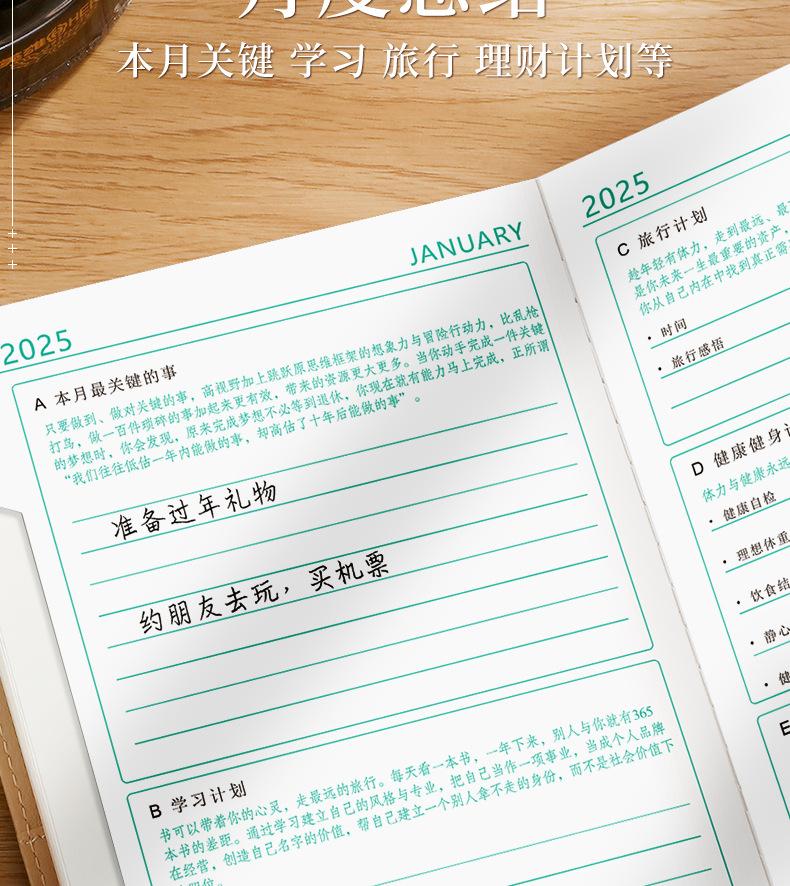 月度总结
本月关键 学习 旅行 理财计划等
2025
JANUARY
A 本月最关键的事
只要做到、做对关键的事，高视野加上跳跃原思维框架的想象力与冒险行动力，比乱枪
打鸟，做一百件琐碎的事加起来更有效，带来的资源更大更多。当你动手完成一件关键
的梦想时，你会发现，原来完成梦想不必等到退休，你现在就有能力马上完成，正所谓
“我们往往低估一年内能做的事，却高估了十年后能做的事”。
准备过年礼物
约朋友去玩，买机票
B 学习计划
书可以带着你的心灵，走最远的旅行。每天看一本书，一年下来，别人与你就有365
本书的差距。通过学习建立自己的风格与专业，把自己当作一项事业，当成个人品牌
在经营，创造自己名字的价值，帮自己建立一个别人拿不走的身份，而不是社会价值下
2025
C 旅行计划
趁年轻有体力，走到最远、最
是你未来一生最重要的资产，
你从自己内在中找到真正需
• 时间
• 旅行感悟
D 健康健身计
体力与健康永远
• 健康自检
• 理想体重
• 饮食结
• 静心
• 健
E